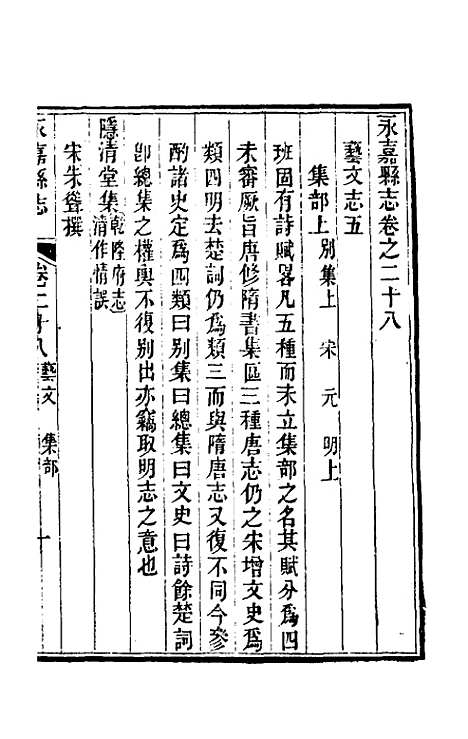 永嘉縣志卷之二十八
藝文志五
集部上 別集上 宋 元 明上
班固有詩賦畧凡五種而未立集部之名其賦分爲四
未審厥旨唐修隋書集區三種唐志仍之宋增文史爲
類四明去楚詞仍爲類三而與隋唐志又復不同今參
酌諸史定爲四類曰別集曰總集曰文史曰詩餘楚詞
卽總集之權輿不復別出亦竊取明志之意也
隱清堂集 乾隆府志
清作情誤
宋朱聳撰
永嘉縣志 卷二十八 藝文 集部 一